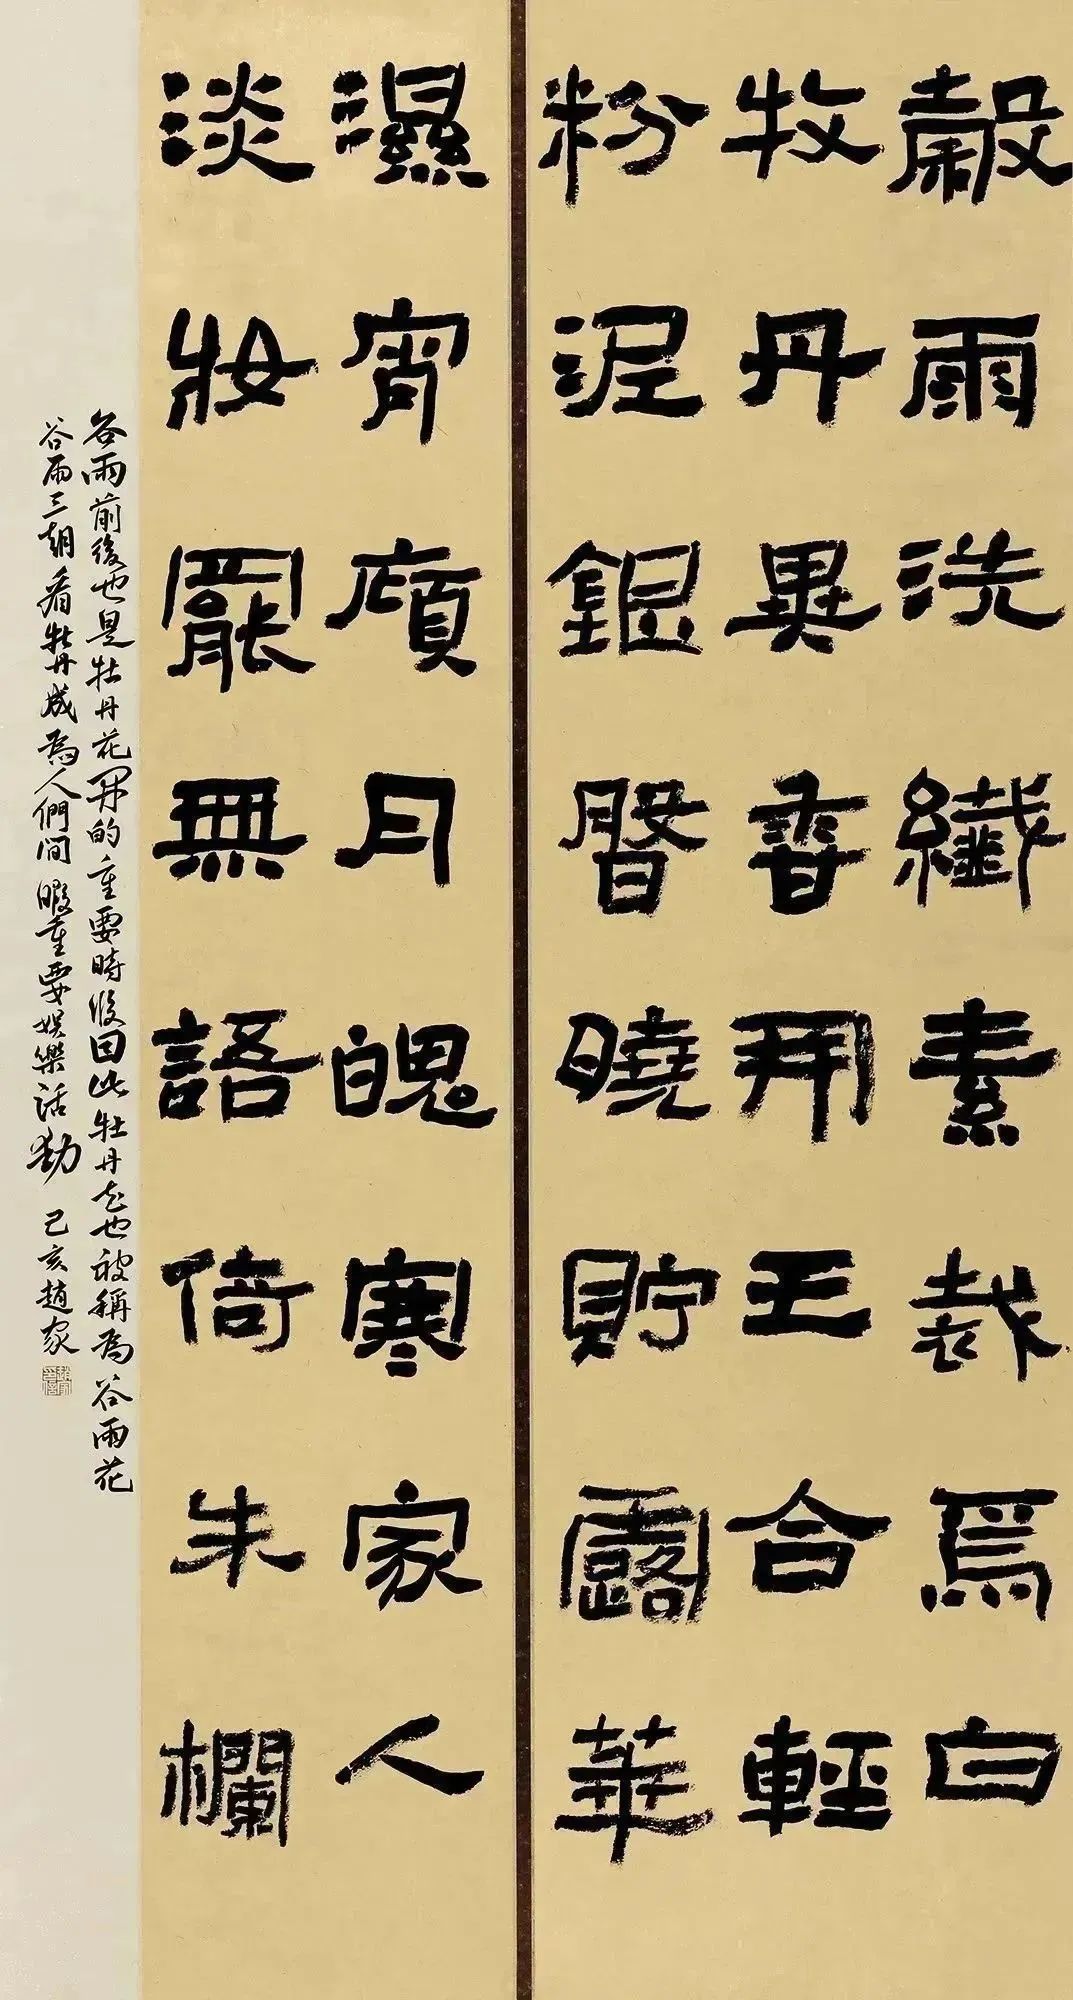 穀雨洗纖素裁爲白
牧丹異香開玉合輕
粉泥銀盤曉貯露華
濕宵傾月魄寒家人
淡妝罷無語倚朱欄
谷雨前後也是牡丹花開的重要時段因此牡丹花也被稱爲谷雨花
谷雨三朝看牡丹成爲人們閒暇重要娛樂活動 己亥趙家